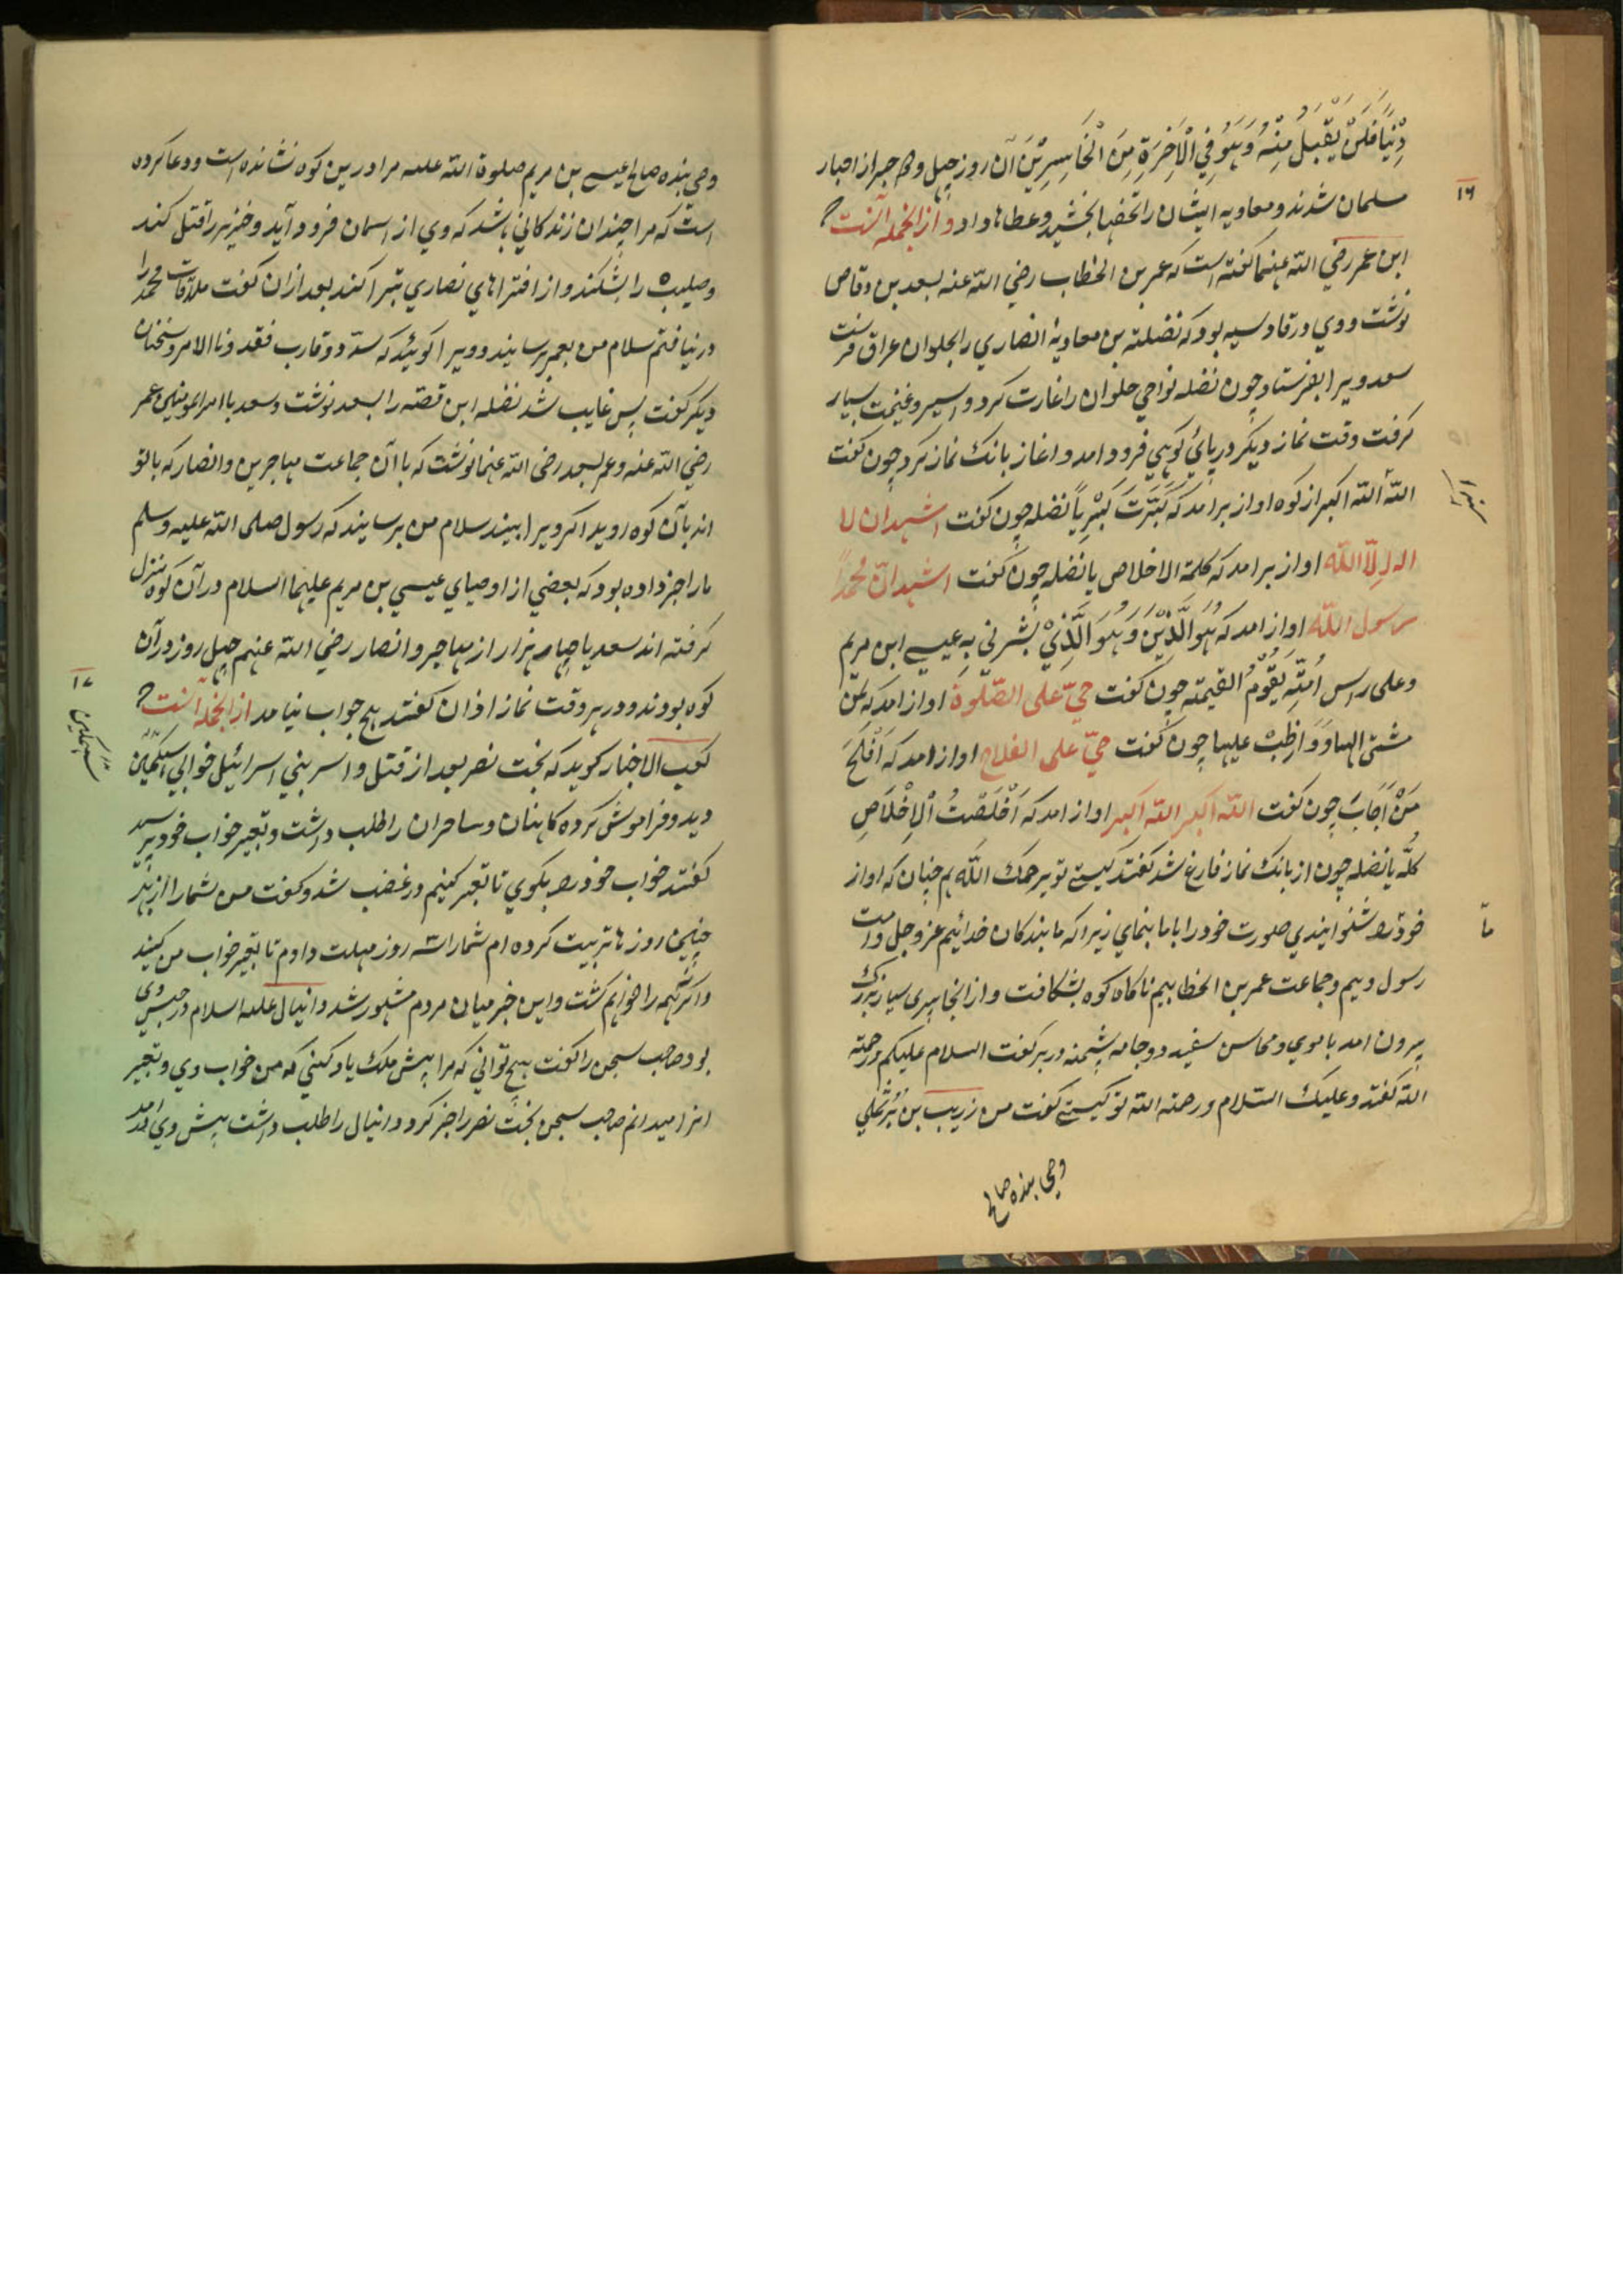 دِيْنًا فَلَنْ يُقْبَلَ مِنْهُ وَهُوَ فِي الْآخِرَةِ مِنَ الْخَاسِرِيْنَ آن روز چهل و دو حبر از احبار
۱۶
مسلمان شدند و معاويه ايشان را تحفها بخشيد و عطاها داد و از انجمله آنست كه
ابن عمر رضي الله عنهما كفته است كه عمر بن الخطاب رضي الله عنه بسعد بن وقاص
نوشت و وي در قادسيه بود كه نضلة بن معاوية انصاري را بحلوان عراق فرست
سعد ويرا بفرستاد چون نضله نواحي حلوان را غارت كرد و اسير و غنيمت بسيار
كرفت وقت نماز ديكر در پائ كوهي فرود امد و اغاز بانك نماز كرد چون كفت
الله الله اكبر از كوه اواز برامد كه كَبَّرْتَ كَبِيْرًا يا نضله چون كفت اشهد ان لا
اله الا الله اواز برامد كه كلمة الاخلاص يا نضله چون كفت اشهد ان محمدًا
رسول الله اواز امد كه هُوَ الدِّيْنُ وَهُوَ الَّذِيْ بشرني به عيسي ابن مريم
وعلى راس اُمَّتِه يَقُوْمُ القيمة چون كفت حيّ على الصّلوة اواز امد كه لمن
مشى اليها وَوَاظَبَ عليها چون كفت حيّ على الفلاح اواز امد كه اَفْلَحَ
مَنْ اَجَابَ چون كفت الله اكبر الله اكبر اواز امد كه اَخْلَصْتَ الْاِخْلَاصَ
كلّه يا نضله چون از بانك نماز فارغ شد كفتند كيستي تو يرحمك الله هم چنان كه اواز
خود را شنوايندي صورت خود را با ما بنماي زيرا كه ما بندكان خدائيم عز و جل و امت
ما
رسول وييم و جماعت عمر بن الخطابيم ناكاه كوه بشكافت و از انجا پيري سياربزرك
بيرون امد با موي و محاسن سفيد و دو جامه پشمينه در بر كفت السلام عليكم ورحمة
الله كفتند وعليك السّلام ورحمة الله تو كيستي كفت من زريب بن بَرثملي
وصى بنده صالح
وصى بنده صالح عيسي بن مريم صلوة الله عليه مرا درين كوه نشانده است و دعا كرده
است كه مرا چندان زندكاني باشد كه وي از اسمان فرود آيد و خنزير را قتل كند
و صليب را بشكند و از افتراهاي نصاري تبرا كند بعد ازان كفت ملاقات محمد را
در نيافتم سلام من بعمر برسانيد و ويرا كوئيد كه سدّد و قارب فقد دنا الامر و سخنان
ديكر كفت پس غايب شد نضله اين قصّه را بسعد نوشت و سعد با امير المومنين عمر
رضي الله عنه و عمر بسعد رضى الله عنهما نوشت كه با آن جماعت مهاجرين و انصار كه با تو
اند بآن كوه رويد اكر ويرا بينيد سلام من برسانيد كه رسول صلى الله عليه وسلم
مارا خبر داده بود كه بعضي از اوصياي عيسي بن مريم عليهما السلام در آن كوه منزل
كرفته اند سعد با چهار هزار از مهاجر و انصار رضي الله عنهم چهل روز در آن
۱۷
كوه بودند و در هر وقت نماز اذان كفتند هيچ جواب نيامد از انجمله آنست كه
كعب الاخبار كويد كه بخت نصر بعد از قتل و اسر بني اسرائيل خوابي سهمكين
سهمكين
ديد و فراموش كرد كاهنان و ساحران را طلب داشت و تعبير خواب خود پرسيد
كفتند خواب خود را بكوي تا تعبير كنيم در غضب شد و كفت من شما را از بهر
چنين روزها تربيت كرده ام شما را سه روز مهلت دادم تا تعبير خواب من كنيد
و اكر نه همه را خواهم كشت و اين خبر ميان مردم مشهور شد دانيال عليه السلام در حبس وى
بود صاحب سجن را كفت هيچ تواني كه مرا پيش ملك ياد كني كه من خواب وي و تعبير
انرا ميدانم صاحب سجن بخت نصر را خبر كرد دانيال را طلب داشت پيش وي امد